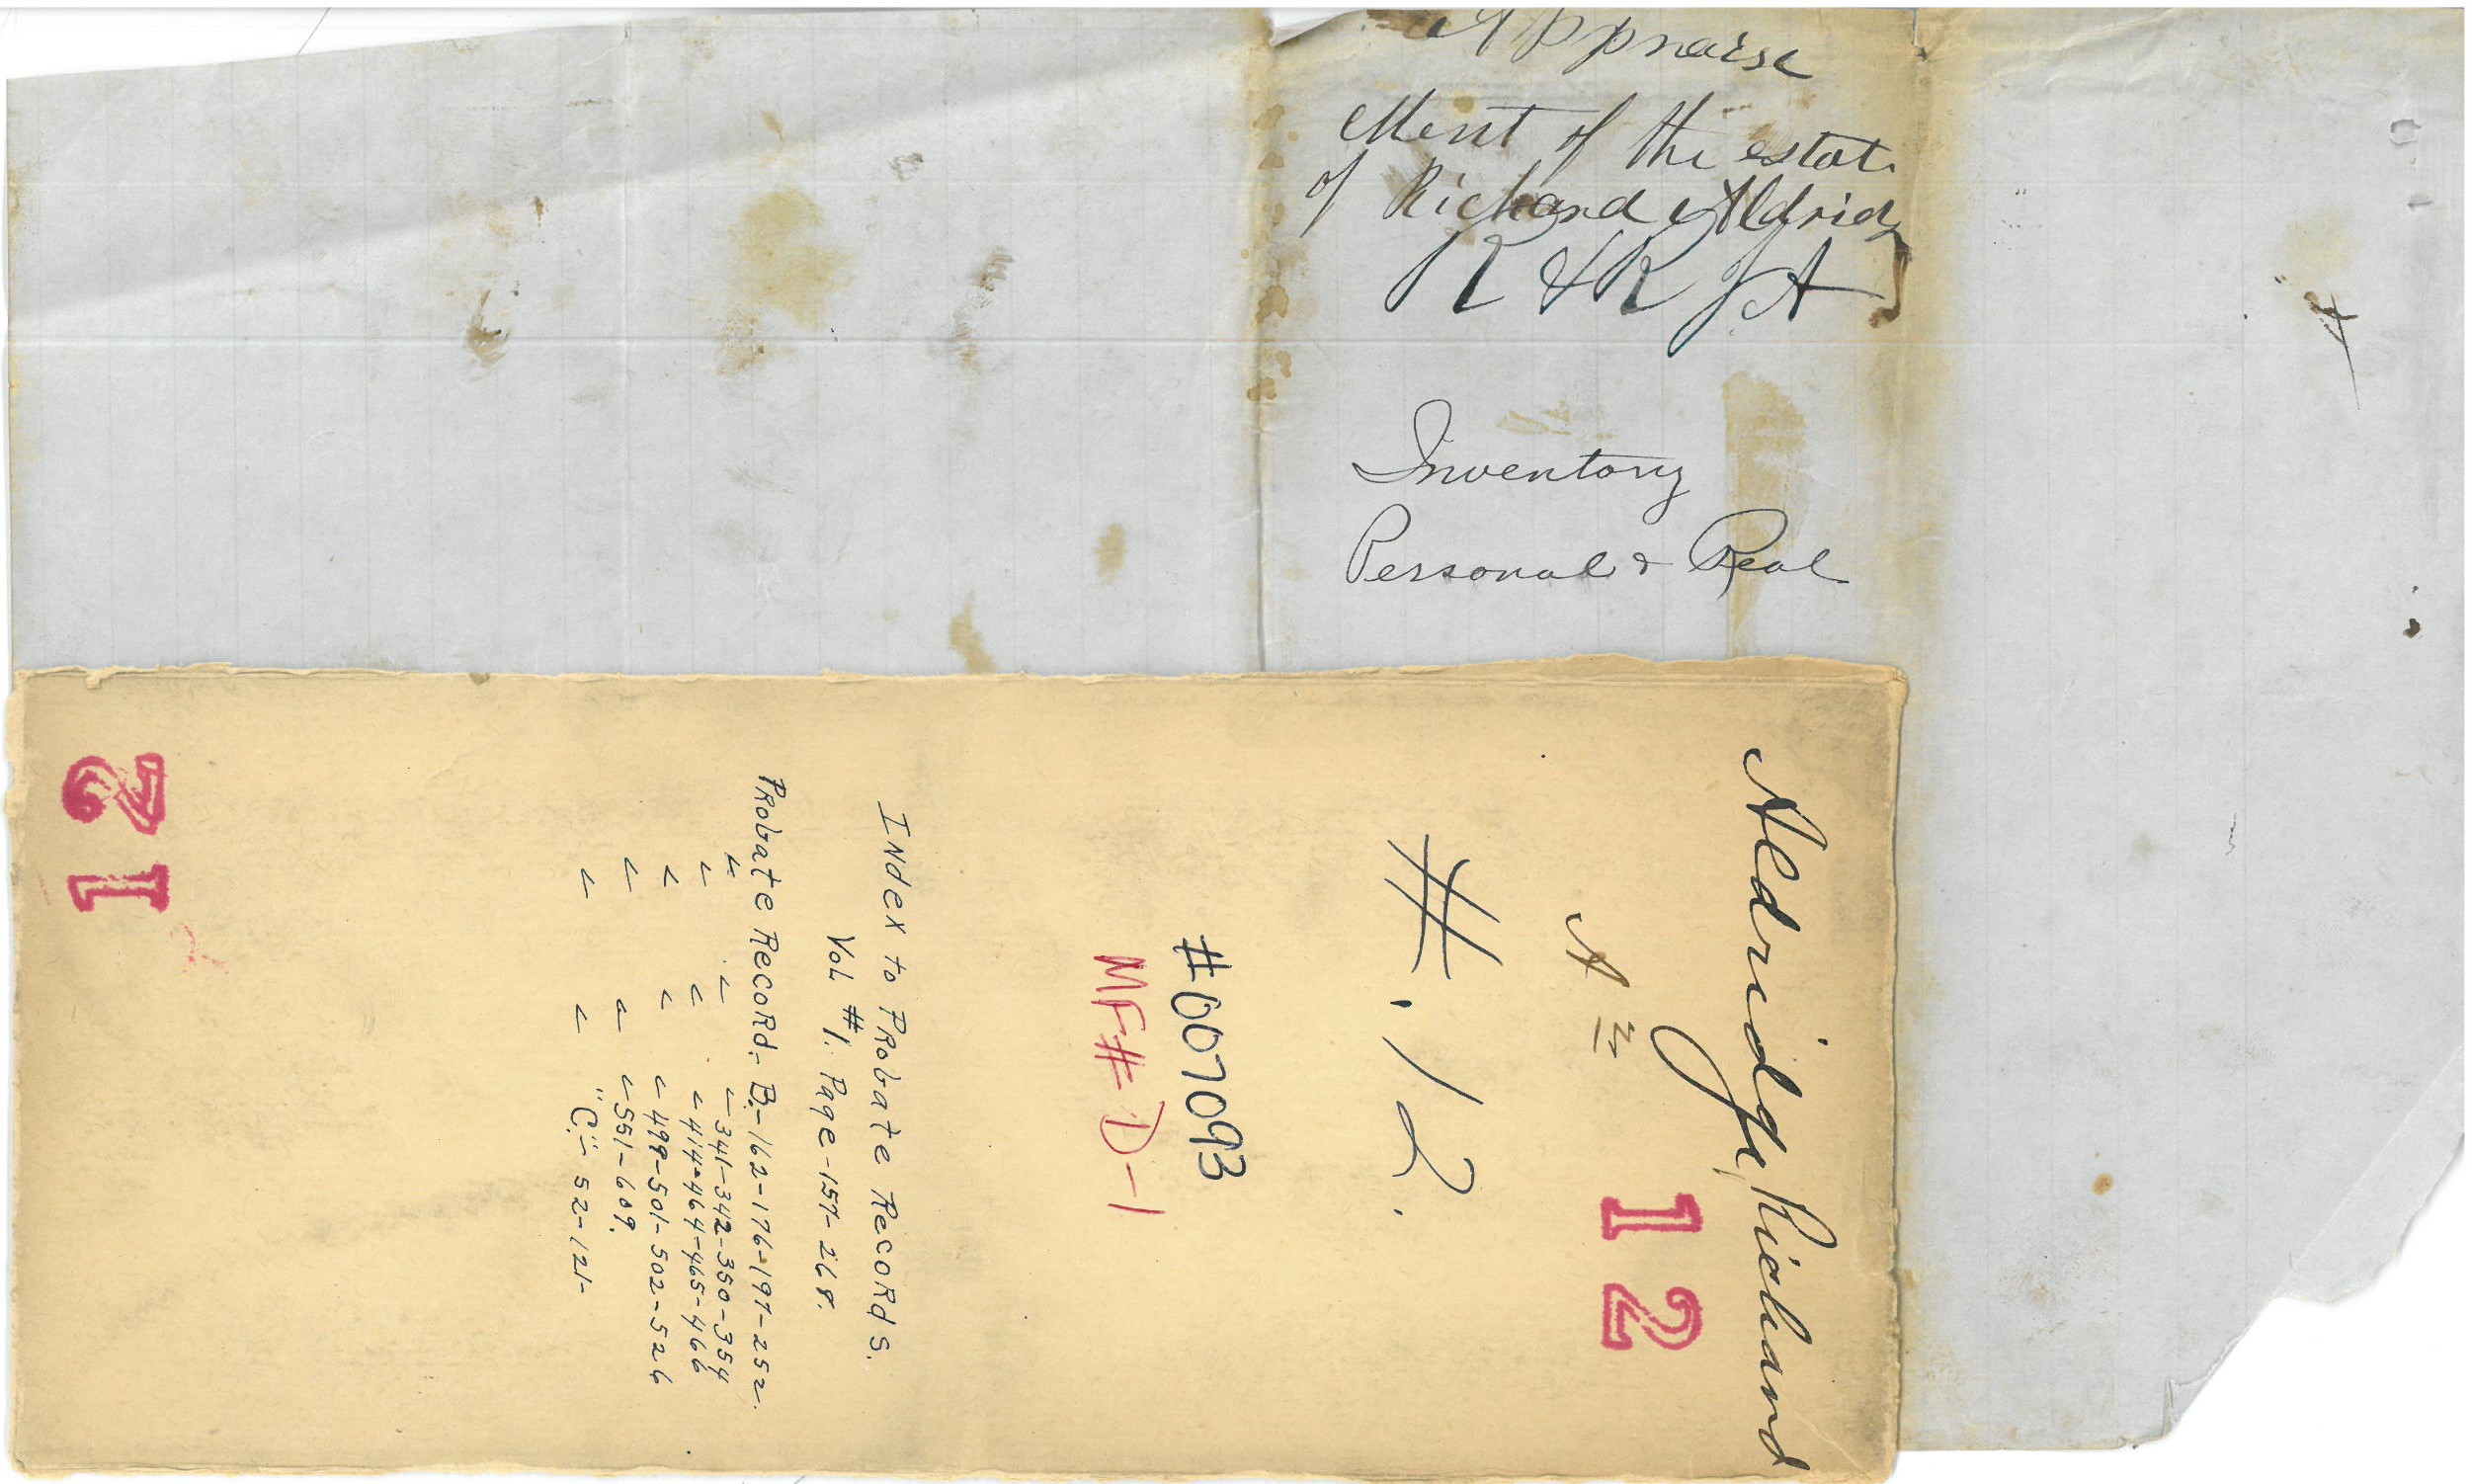 Appraise
Ment of the estate
of Richard Aldridg
R & R J A
Inventory
Personal & Real
Aldridge, Richard
12
A
#.12.
#007093
MF# D-1
Index to Probate Records.
Vol #1. Page-157-268.
Probate Record- B.-162-176-197-252.
" " "-341-342-350-354
" " "-414-464-465-466
" " "-499-501-502-526
" " "-551-609.
" " "C"- 52-121-
12